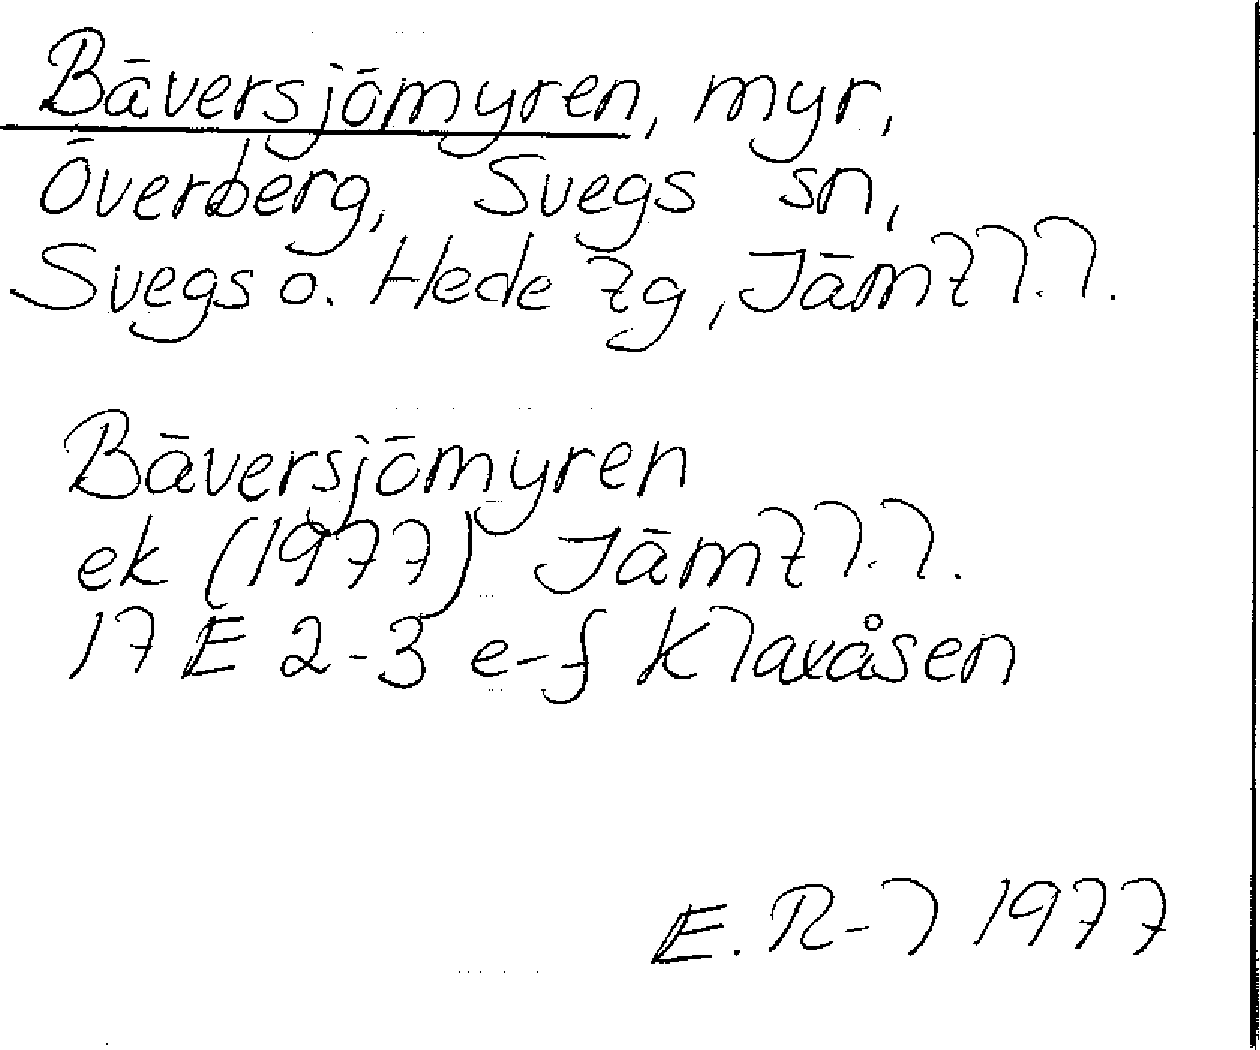 Bäversjömyren, myr,
Överberg, Svegs sn,
Svegs o. Hede tg, Jämtl.l.
Bäversjömyren
ek (1977) Jämtl.l.
17 E 2-3 e-f Klaxåsen
E. R-l 1977